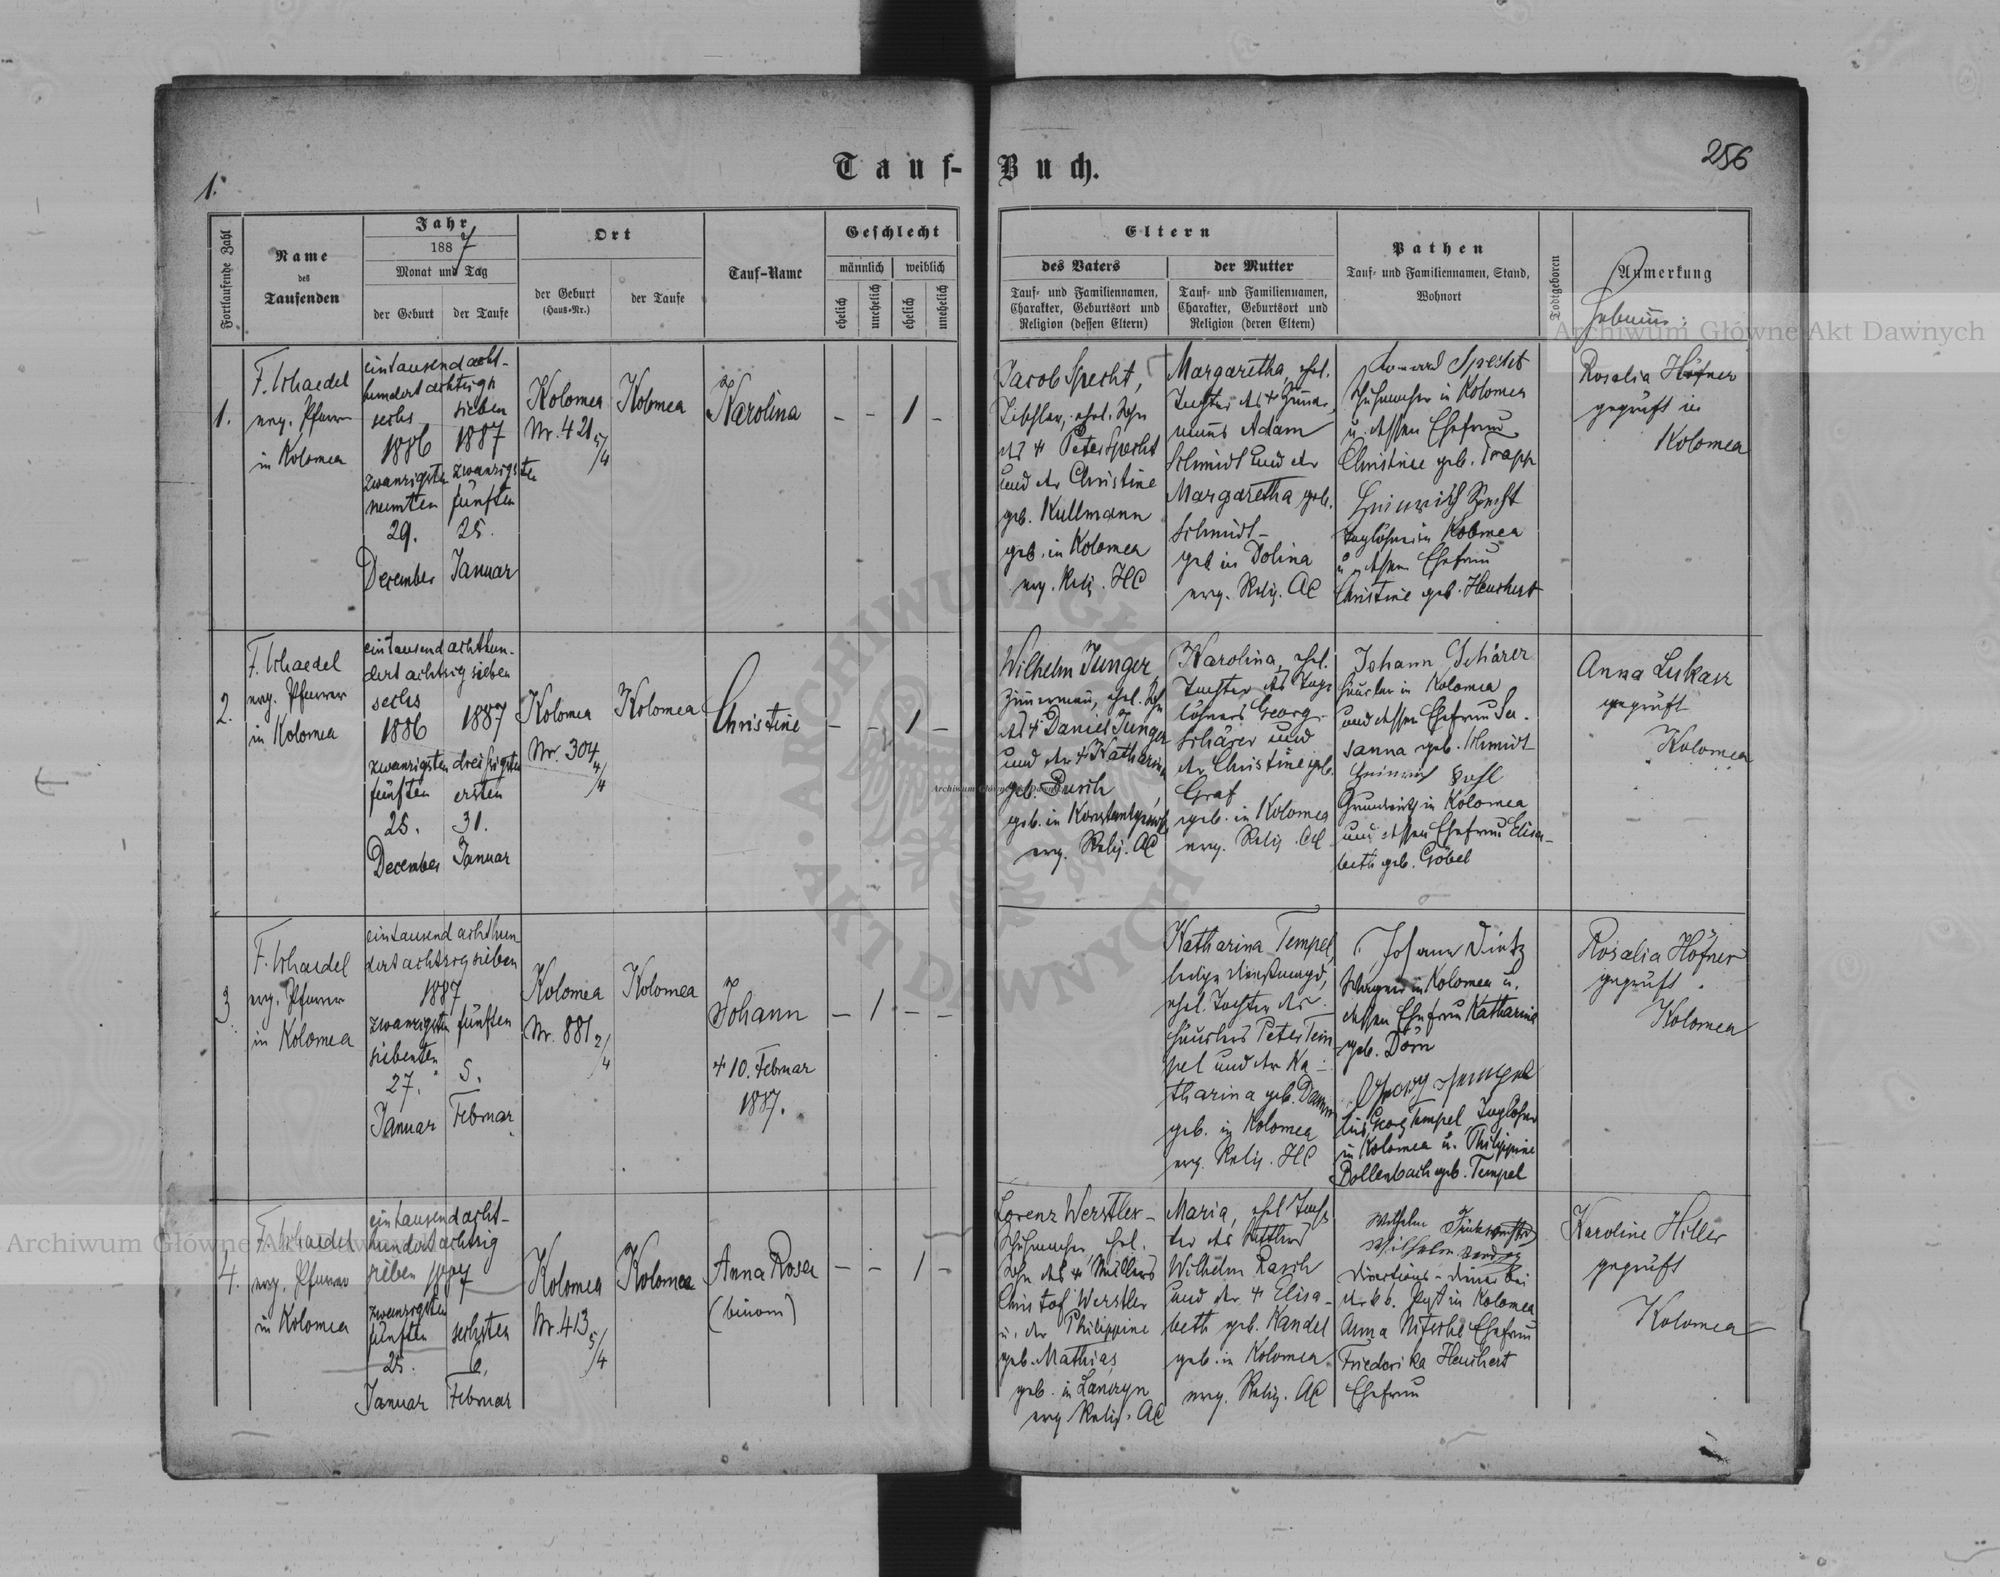 Tauf-Buch.
1.
256
Fortlaufende Zahl
Name
des
Taufenden
Jahr
1887
Monat und Tag
der Geburt
der Taufe
Ort
der Geburt
(Haus-Nr.)
der Taufe
Tauf-Name
Geschlecht
männlich
weiblich
ehelich
unehelich
ehelich
unehelich
Eltern
des Vaters
Tauf- und Familiennamen,
Charakter, Geburtsort und
Religion (dessen Eltern)
der Mutter
Tauf- und Familiennamen,
Charakter, Geburtsort und
Religion (deren Eltern)
Pathen
Tauf- und Familiennamen, Stand,
Wohnort
Todtgeboren
Anmerkung
Hebamme:
1.
F. Schaedel
evg. Pfarrer
in Kolomea
eintausend acht-
hundert achtzig
sechs
sieben
1886
1887
zwanzigsten
zwanzigsten
neunten
fünften
29.
25.
December
Januar
Kolomea
Nr. 421 5/4
Kolomea
Karolina
- - 1 -
Jacob Specht,
ehel. Sohn
des + Peter Specht
und der Christine
geb. Kullmann
geb. in Kolomea
evg. Relig. HC
Margaretha, ehel.
Tochter des + Zimmer-
manns Adam
Schmidt und der
Margaretha geb.
Schmidt
geb in Dolina
evg. Relig. AC
Specht
Schuhmacher in Kolomea
u. dessen Ehefrau
Christine geb. Trapp
Heinrich Specht
Taglöhner in Kolomea
u dessen Ehefrau
Christine geb. Heuchert
Rosalia Höfner
geprüft in
Kolomea
2.
F. Schaedel
evg. Pfarrer
in Kolomea
eintausend achthun-
dert achtzig sieben
sechs
1886
1887
zwanzigsten
dreißigsten
fünften
ersten
25.
31.
December
Januar
Kolomea
Nr. 304 4/4
Kolomea
Christine
- - 1 -
Wilhelm Junger,
Zimmermann, ehel. Sohn
des + Daniel Junger
und der + Katharina
geb.
geb. in
evg. Relig. AC
Karolina, ehel.
Tochter des Tag-
löhners Georg
Schärer und
der Christine geb.
Graf
geb. in Kolomea
evg. Relig. AC
Johann Schärer
Häusler in Kolomea
und dessen Ehefrau Su-
sanna geb. Schmidt
Heinrich Pohl
Grundwirth in Kolomea
und dessen Ehefrau Elisa-
beth geb. Göbel
Anna Lukasz
geprüft
Kolomea
3.
F. Schaedel
evg. Pfarrer
in Kolomea
eintausend achthun-
dert achtzig sieben
1887
zwanzigsten
fünften
siebenten
27.
5.
Januar
Februar
Kolomea
Nr. 881 2/4
Kolomea
Johann
+ 10. Februar
1887.
- 1 - -
Katharina Tempel,
ledige Dienstmagd,
ehel. Tochter des
Häuslers Peter Tem-
pel und der Ka-
tharina geb. Damm
geb. in Kolomea
evg. Relig. HC
Johann Dietz
Wagner in Kolomea u.
dessen Ehefrau Katharina
geb. Dörn
Georg Tempel
Georg Tempel, Taglöhner
in Kolomea u. Philippine
Bollenbach geb. Tempel
Rosalia Höfner
geprüft
Kolomea
4.
F. Schaedel
evg. Pfarrer
in Kolomea
eintausend acht-
hundert achtzig
sieben 1887
zwanzigsten
fünften
sechsten
25.
6.
Januar
Februar
Kolomea
Nr. 413 5/4
Kolomea
Anna Rosa
(binom)
- - 1 -
Lorenz Werstler
Schuhmacher, ehel.
Sohn des + Müllers
Christof Werstler
u. der Philippine
geb. Mathias
geb. in Lanczyn
evg Relig. AC
Maria, ehel Toch-
ter des Sattlers
Wilhelm Rasch
und der + Elisa-
beth geb. Kandel
geb. in Kolomea
evg. Relig. AC
Wilhelm
Wilhelm
Directions-diener bei
der k. Post in Kolomea
Anna Ehefrau
Friederika Heuchert
Ehefrau
Karoline Hiller
geprüft
Kolomea
Archiwum Główne Akt Dawnych
Archiwum Główne Akt Dawnych
Archiwum Główne Akt Dawnych
ARCHIWUM GŁÓWNE AKT DAWNYCH